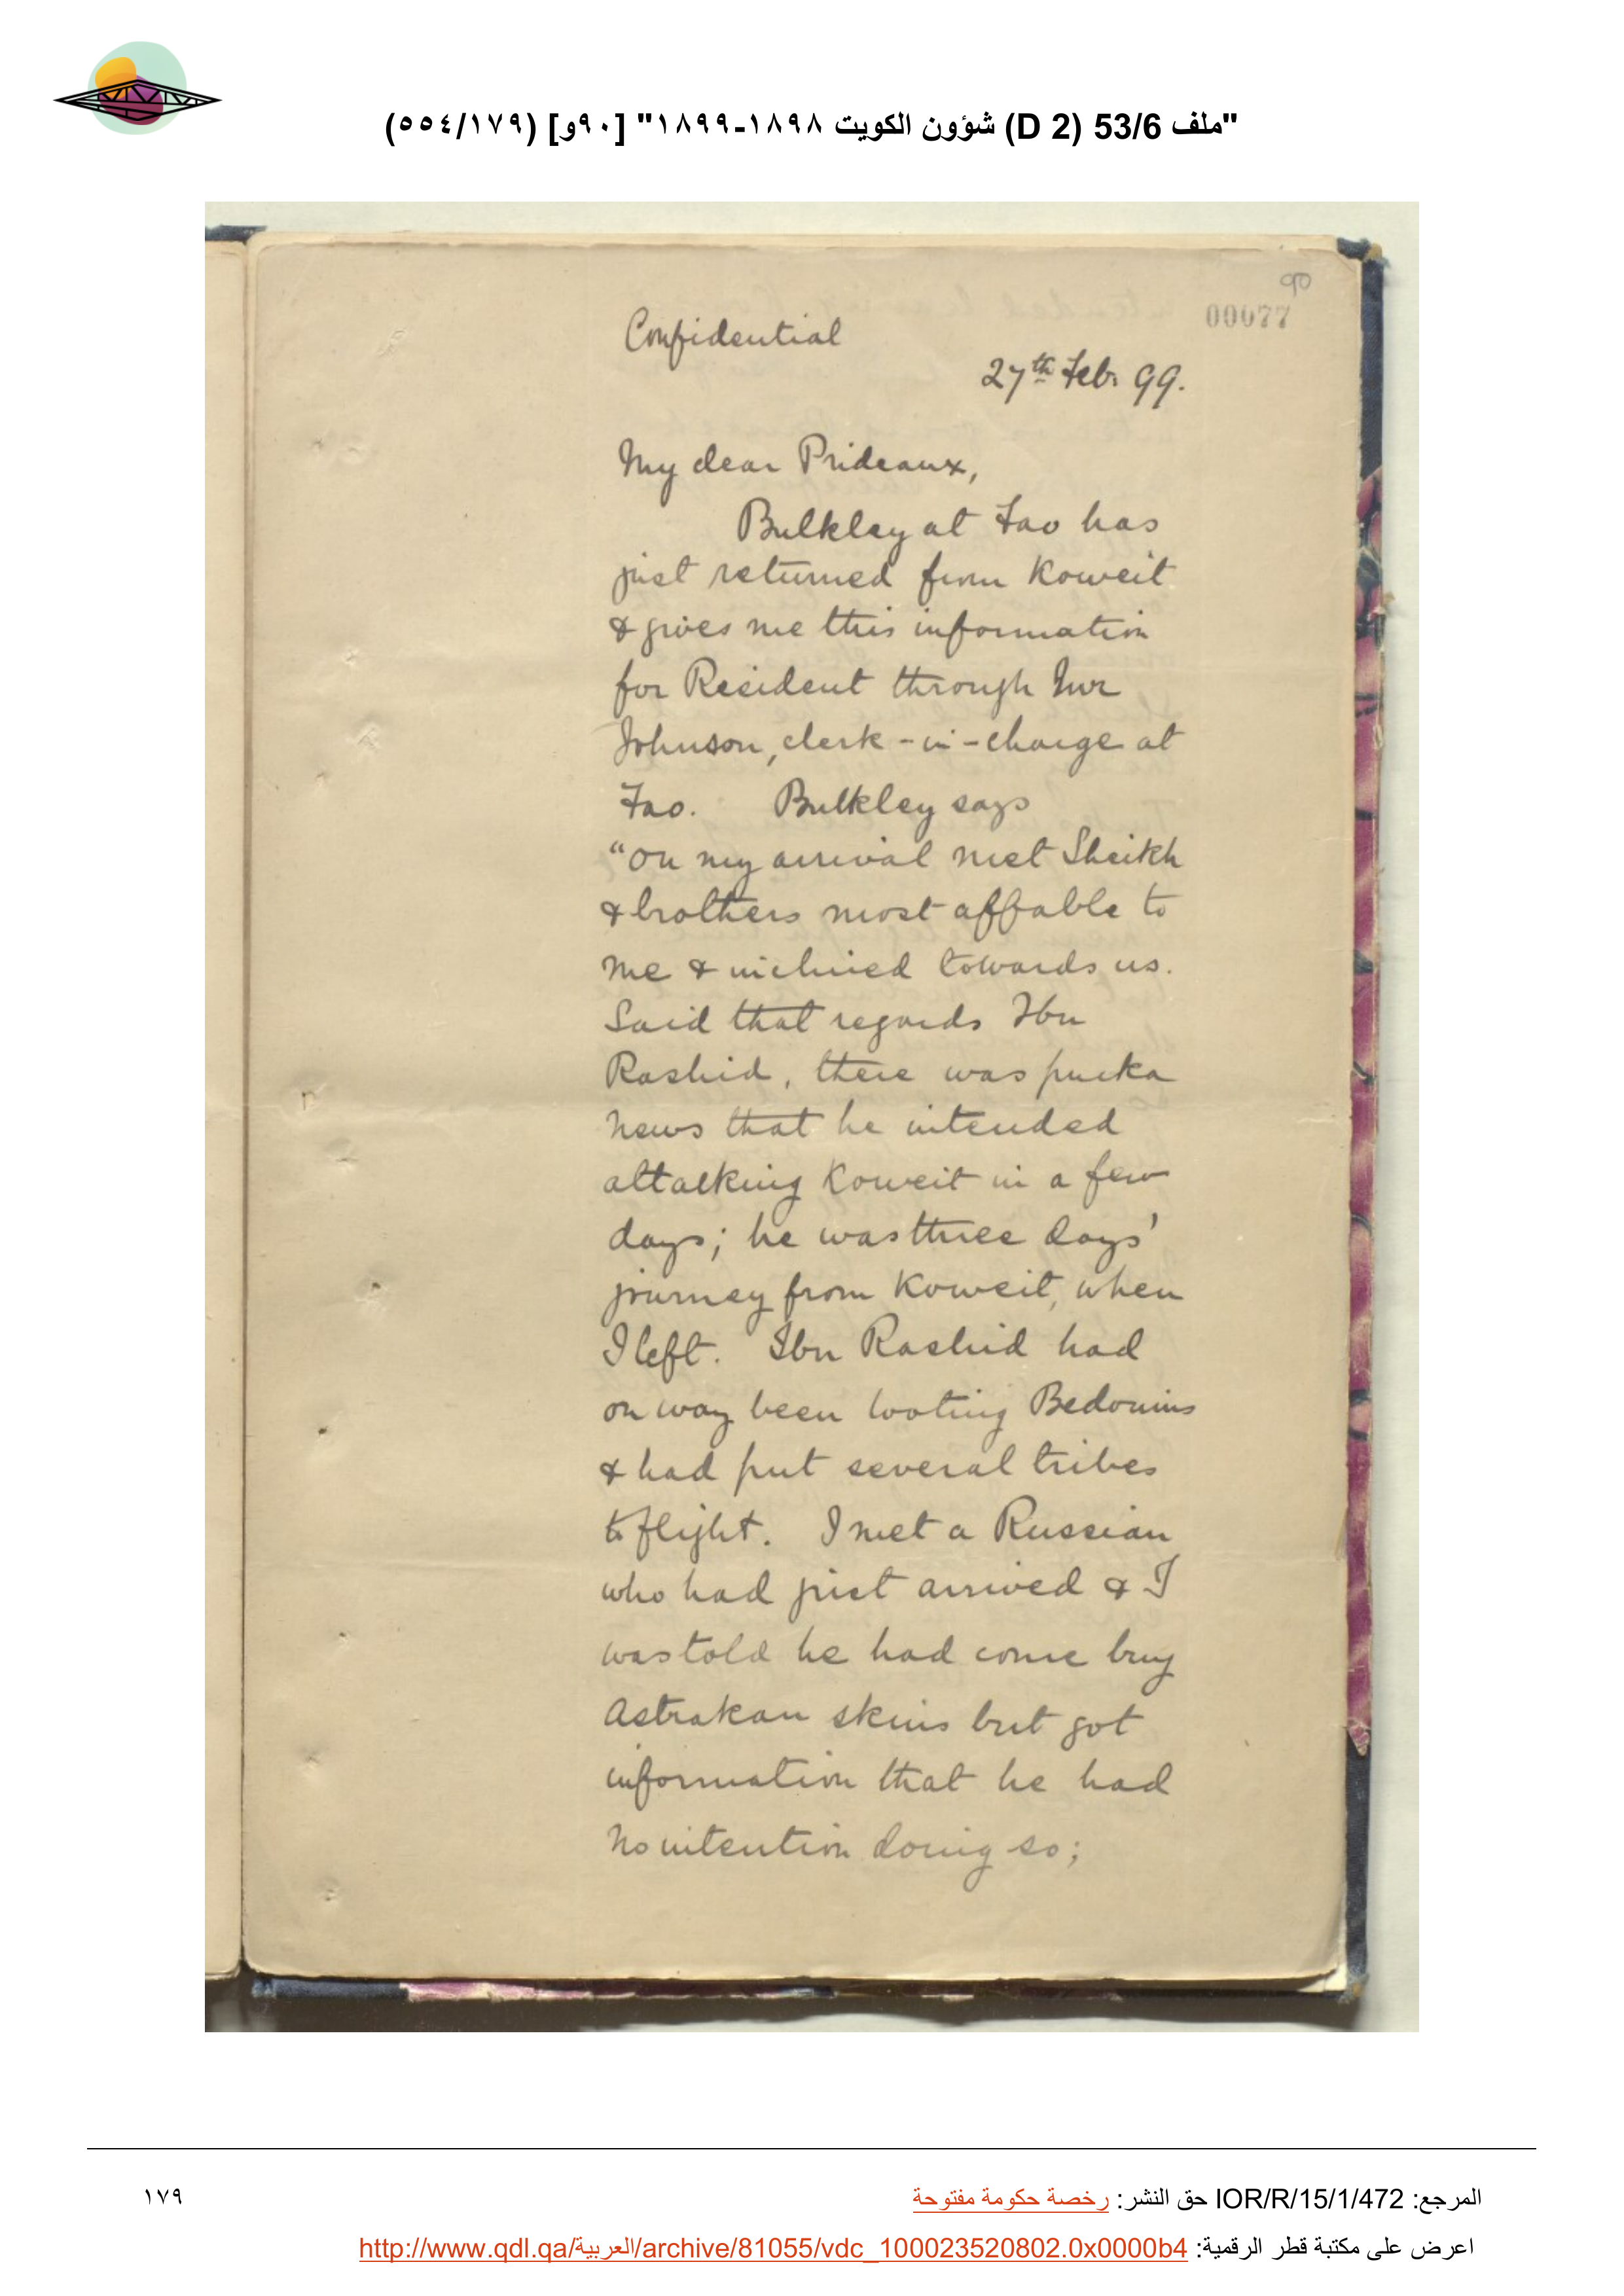 "ملف 53/6 (D 2) شؤون الكويت ١٨٩٨-١٨٩٩" [٩٠و] (٥٥٤/١٧٩)
90
00077
Confidential
27th Feb. 99.
My dear Prideaux,
Bulkley at Fao has
just returned from Koweit
& gives me this information
for Resident through Mr
Johnson, clerk-in-charge at
Fao. Bulkley says
"On my arrival met Sheikh
& brothers most affable to
me & inclined towards us.
Said that regards Ibn
Rashid, there was pucka
news that he intended
attacking Koweit in a few
days; he was three days'
journey from Koweit, when
I left. Ibn Rashid had
on way been looting Bedouins
& had put several tribes
to flight. I met a Russian
who had just arrived & I
was told he had come buy
Astrakan skins but got
information that he had
no intention doing so;
المرجع: IOR/R/15/1/472 حق النشر: رخصة حكومة مفتوحة
١٧٩
اعرض على مكتبة قطر الرقمية: http://www.qdl.qa/العربية/archive/81055/vdc_100023520802.0x0000b4